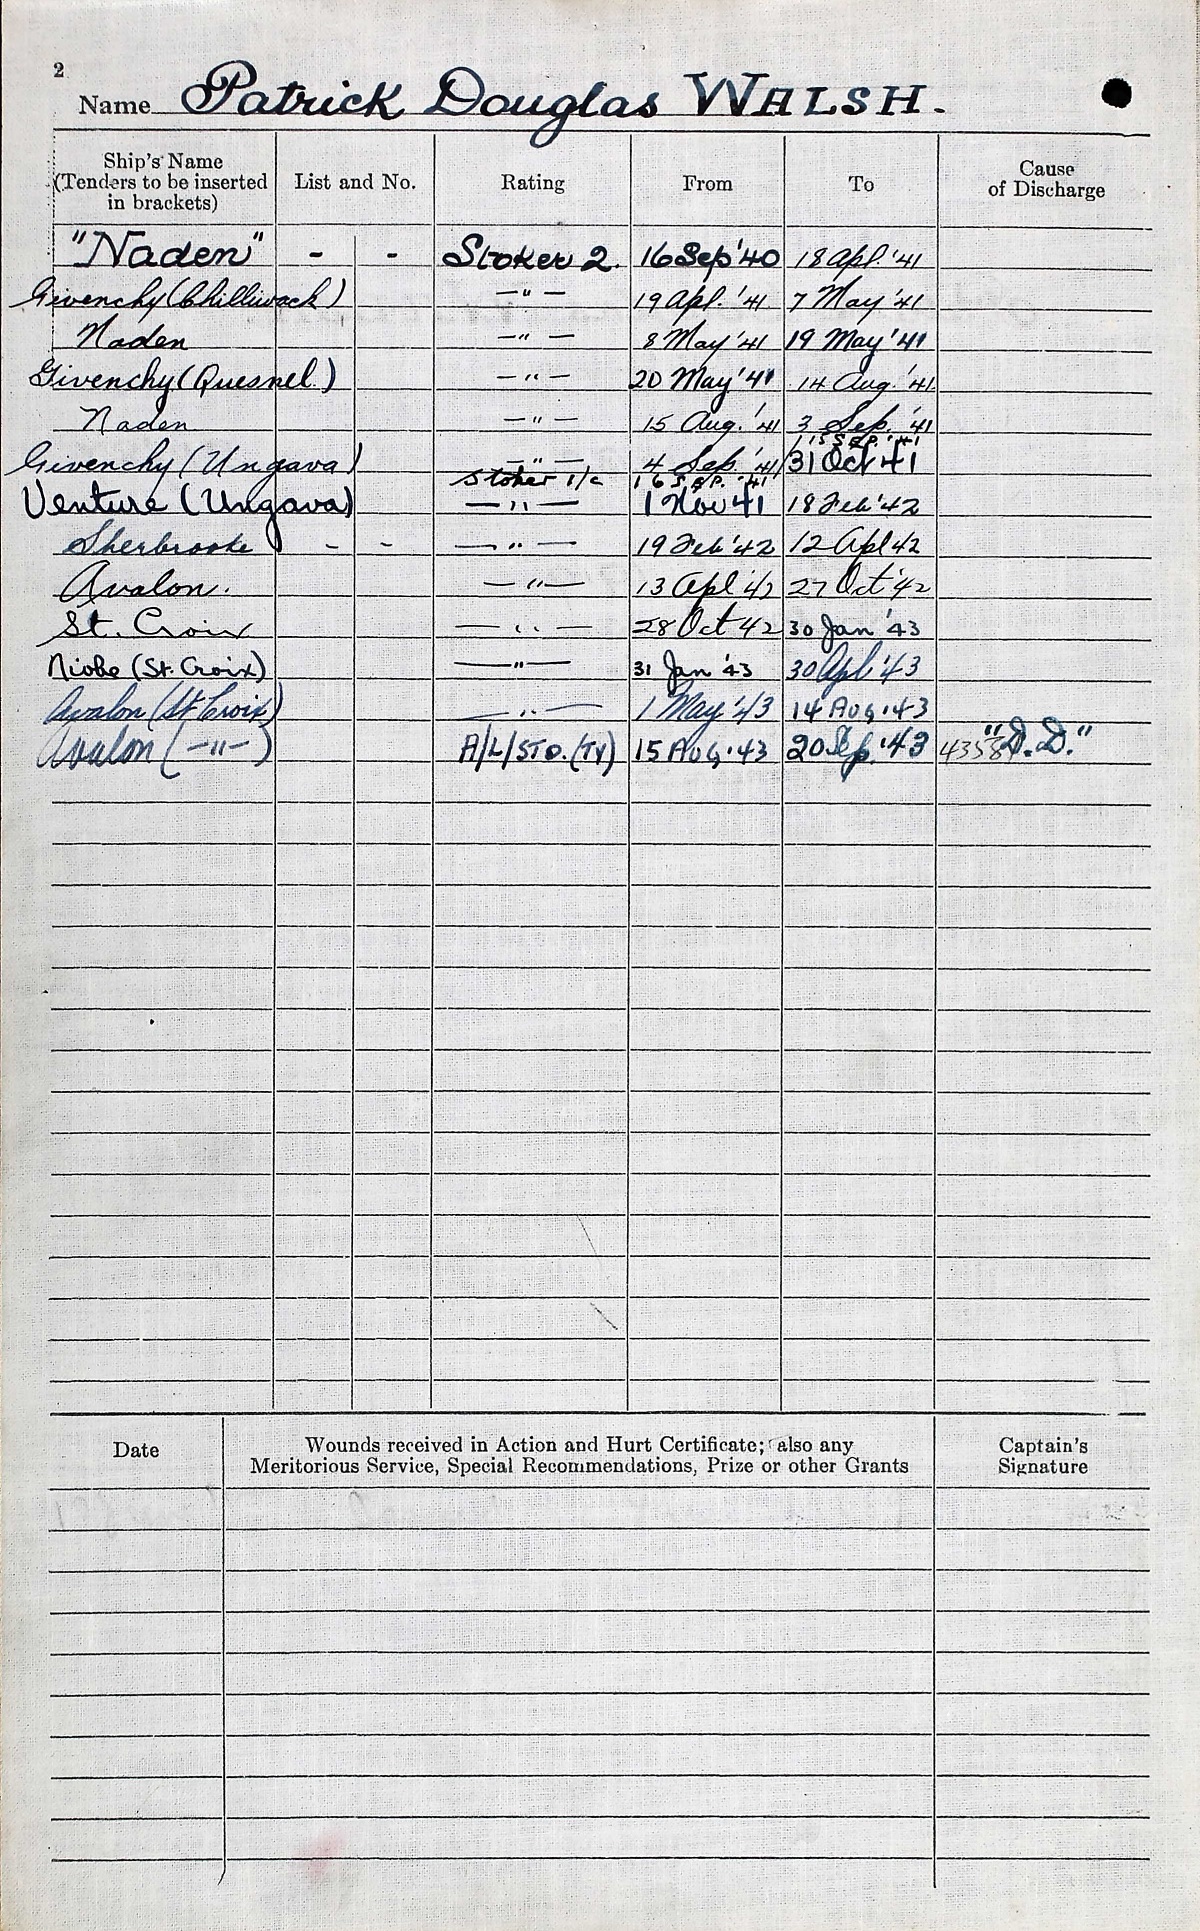 2
Name Patrick Douglas WALSH.
Ship's Name (Tenders to be inserted in brackets) List and No. Rating From To Cause of Discharge
"Naden" - - Stoker 2. 16 Sep '40 18 Apl. '41
Givenchy (Chilliwack) —"— 19 Apl. '41 7 May '41
Naden —"— 8 May '41 19 May '41
Givenchy (Quesnel.) —"— 20 May '41 14 Aug. '41
Naden —"— 15 Aug. '41 3 Sep. '41
Givenchy (Ungava) —"— 4 Sep. '41 15 SEP. '41
Stoker 1/c 16 SEP. '41 31 Oct 41
Venture (Ungava) —"— 1 Nov 41 18 Feb '42
Sherbrooke - - —"— 19 Feb '42 12 Apl 42
Avalon. —"— 13 Apl '42 27 Oct '42
St. Croix —"— 28 Oct '42 30 Jan '43
Niobe (St. Croix) —"— 31 Jan '43 30 Apl '43
Avalon (St Croix) —"— 1 May '43 14 AUG. '43
Avalon (—"—) A/L/STO. (TY) 15 AUG. '43 20 Sep. '43 "D.D."
Date Wounds received in Action and Hurt Certificate; also any Meritorious Service, Special Recommendations, Prize or other Grants Captain's Signature